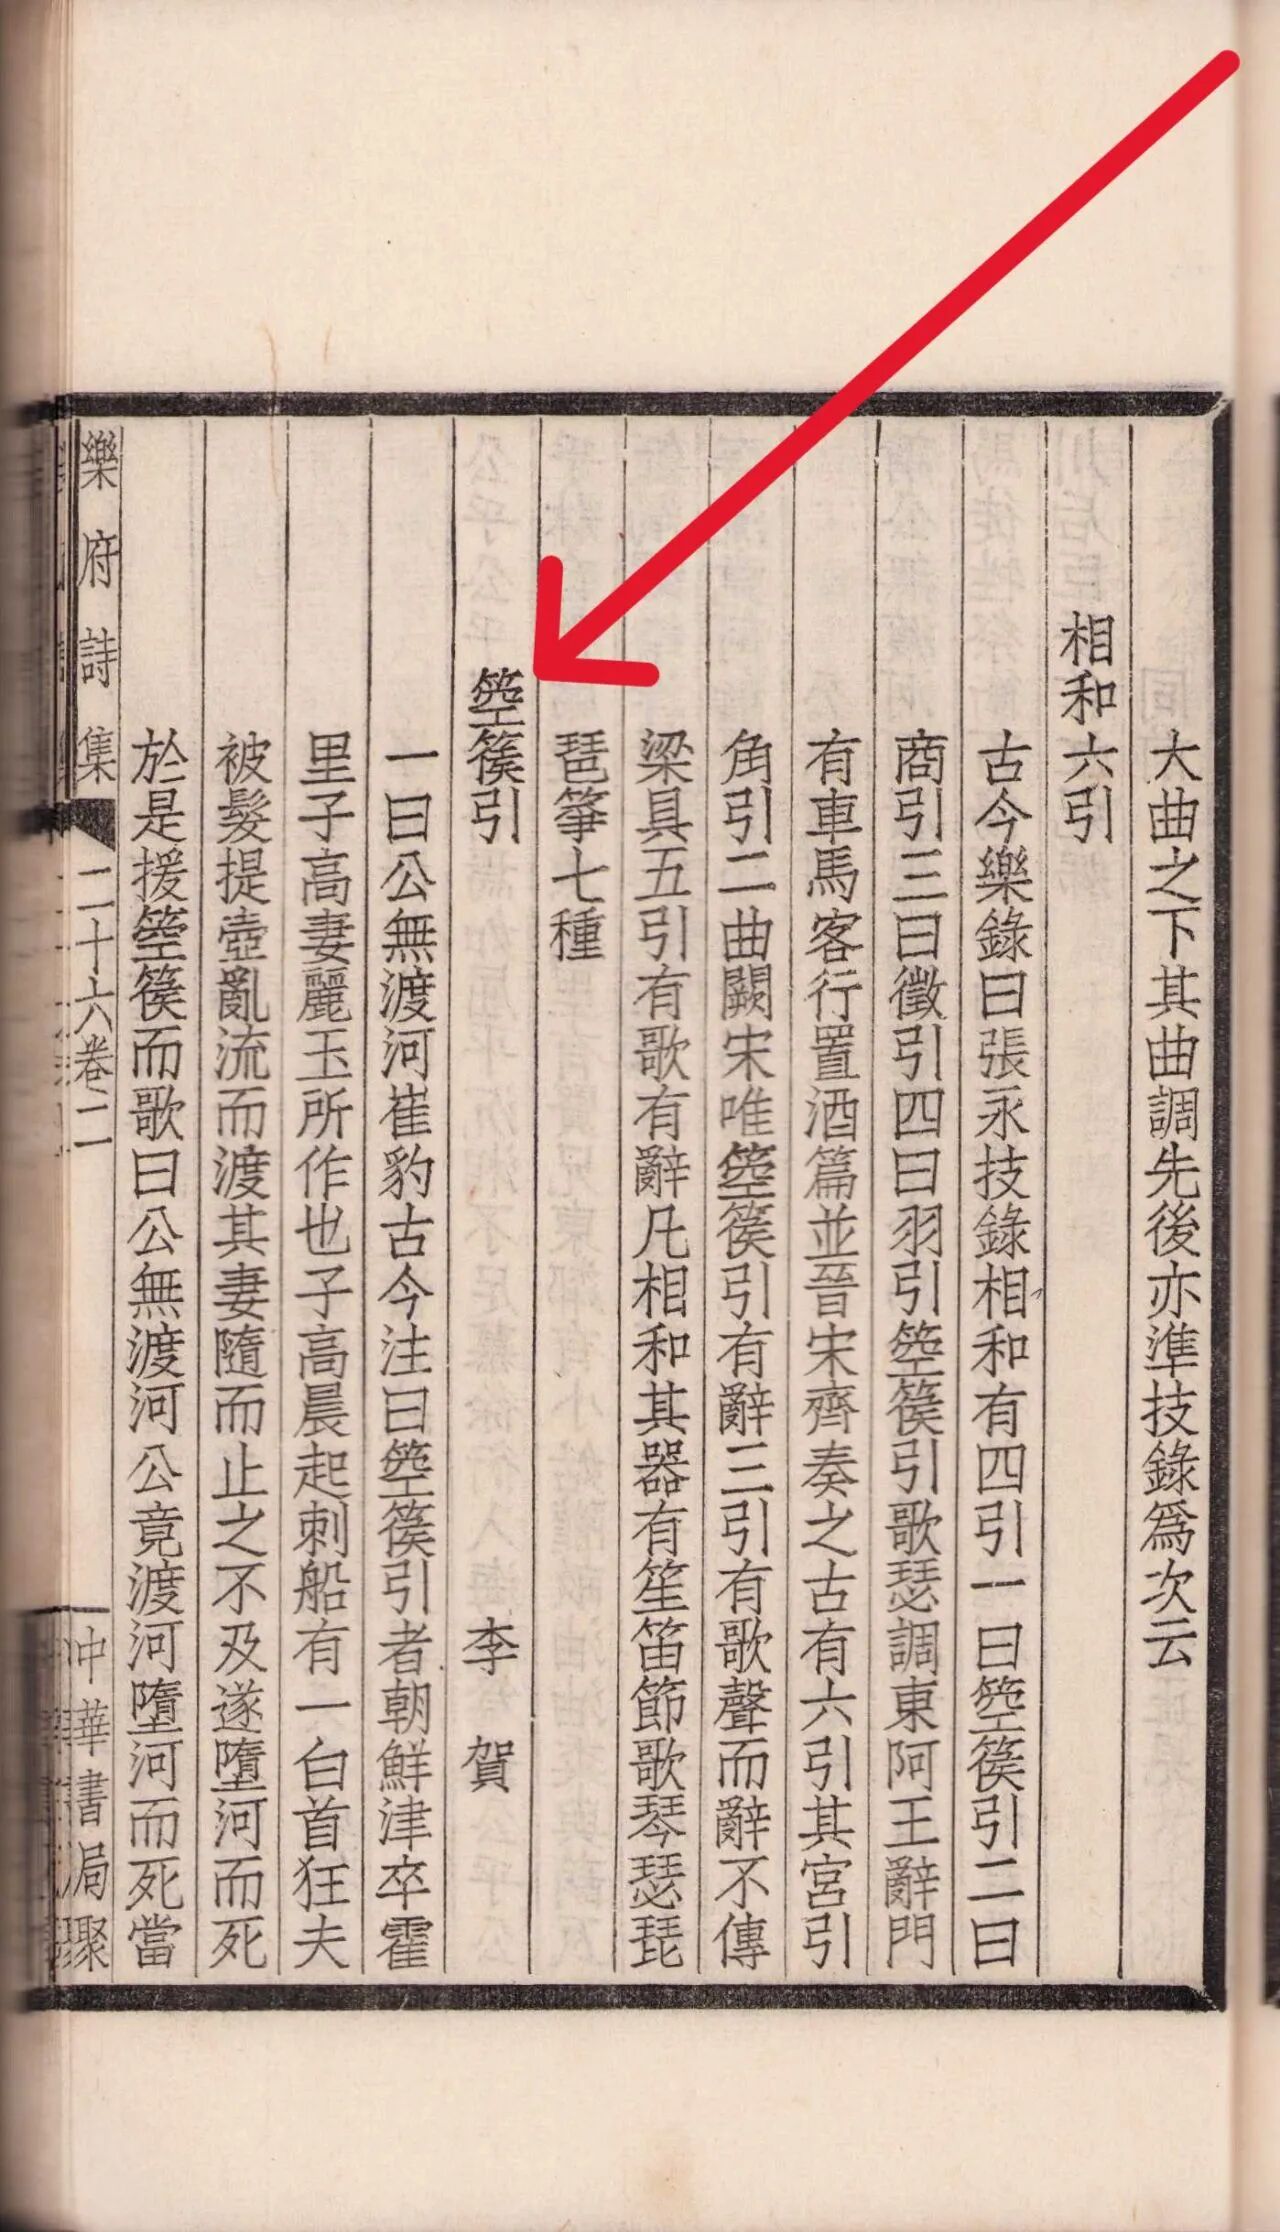 大曲之下其曲調先後亦準技錄爲次云
相和六引
古今樂錄曰張永技錄相和有四引一曰箜篌引二曰
商引三曰徵引四曰羽引箜篌引歌瑟調東阿王辭門
有車馬客行置酒篇並晉宋齊奏之古有六引其宮引
角引二曲闕宋唯箜篌引有辭三引有歌聲而辭不傳
梁具五引有歌有辭凡相和其器有笙笛節歌琴瑟琵
琶箏七種
箜篌引 李賀
一曰公無渡河崔豹古今注曰箜篌引者朝鮮津卒霍
里子高妻麗玉所作也子高晨起刺船有一白首狂夫
被髮提壺亂流而渡其妻隨而止之不及遂墮河而死
於是援箜篌而歌曰公無渡河公竟渡河墮河而死當
樂府詩集 二十六卷 二 中華書局聚